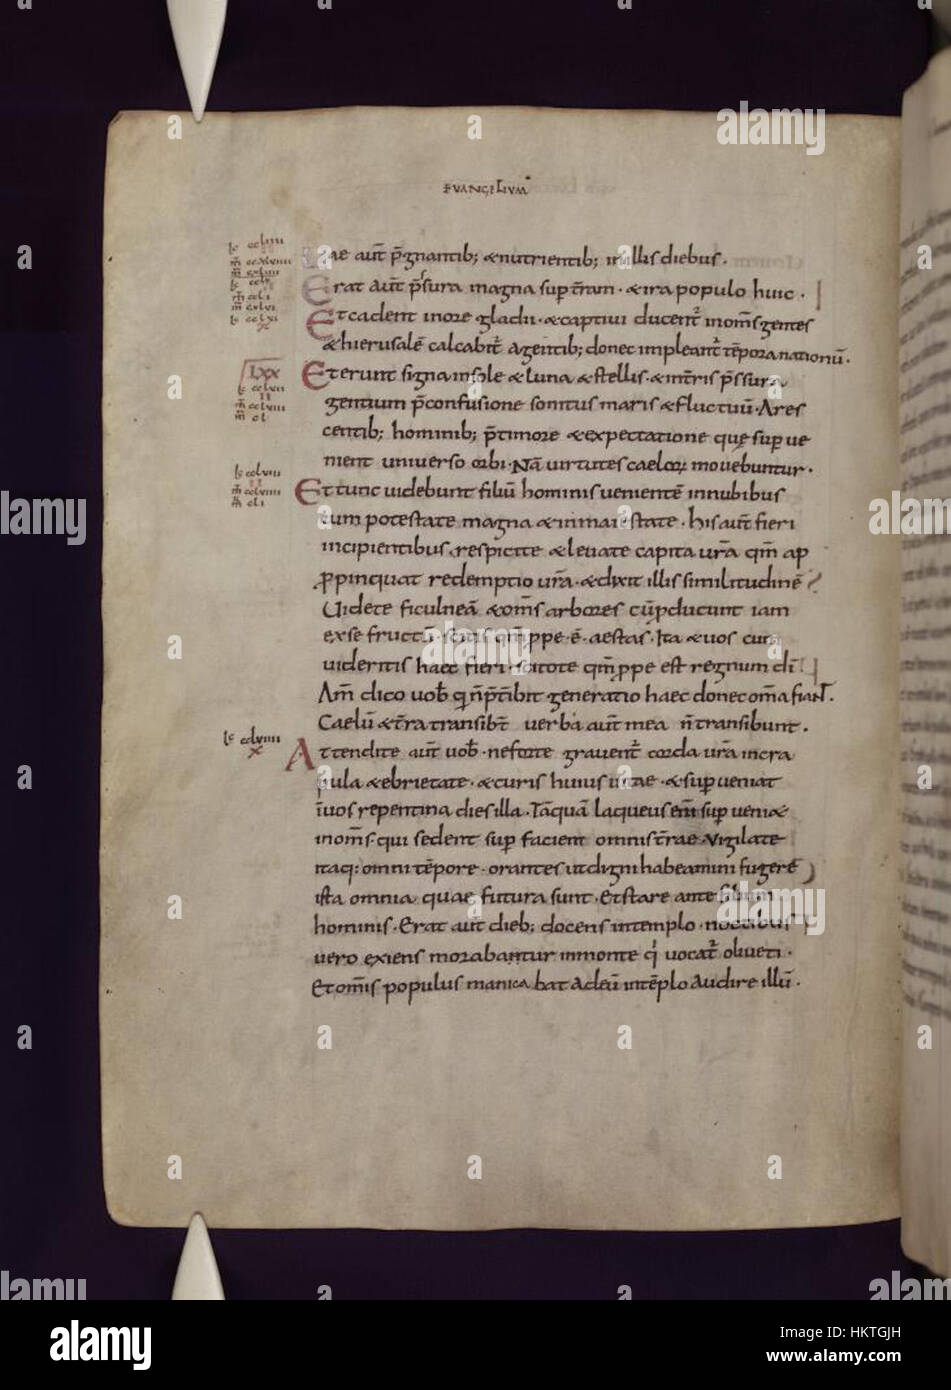 EVANGELIUM
Vae aut̄ p̄gnantib; &nutrientib; inillis diebus.
Erat aut̄ p̄sura magna sup t̄ram · &ira populo huic ·
Etcadent inore gladii · &captivi ducent̄ inom̄s gentes
&hierusalē calcabit̄ agentib; donec impleant̄ tēpora nationū ·
LXX
Eterunt signa insole &luna &stellis · &int̄ris p̄ssura
gentium p̄confusione sonitus maris &fluctuū · Ares
centib; hominib; p̄timore &expectatione quę sup ue
nient universo orbi · Nā uirtutes caelor movebuntur ·
Ettunc uidebunt filiū hominis uenientē innubibus
cum potestate magna &inmaiestate · his aut̄ fieri
incipientibus respicite &leuate capita ur̄a qm̄ ap
ꝓpinquat redemptio ur̄a · &dixit illis similitudinē
Uidete ficulneā &om̄s arbores cū ꝓducunt iam
exse fructū · scitis qm̄ ꝓpe · ē · aestas · Ita &uos cum
uideritis haec fieri · scitote qm̄ ꝓpe est regnum dī ·
Am̄ dico uob̄ q n̄ p̄t̄ibit generatio haec donec om̄a fiant ·
Caelū &t̄ra transibt̄ uerba aut̄ mea n̄ transibunt ·
lc cclviiii
x
Attendite aut̄ uob̄ · neforte grauent̄ corda ur̄a incra
pula &ebrietate · &curis huius uitae · &sup̱ueniat
īuos repentina dies illa · Tāquā laqueus em̄ sup ueni&
inom̄s · qui sedent sup faciem omnis t̄rae · Vigilate
itaq: omni tēpore · orantes ut digni habeamini fugere
ista omnia quae futura sunt · Etstare ante filium
hominis · Erat aut̄ dieb; docens intemplo · noctibus
uero exiens morabantur inmonte q vocat̄ oliueti ·
Et om̄is populus manica bat adeū intēplo audire illū ·
a
alamy
alamy
Image ID: HKTGJH
www.alamy.com